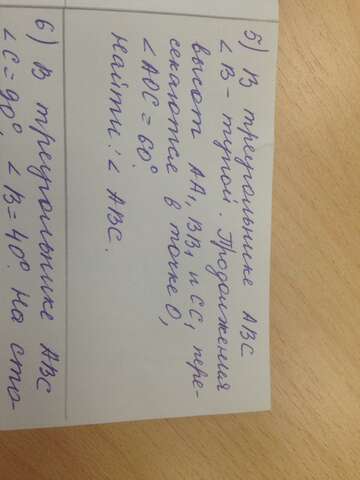 5) В треугольнике ABC
∠B - тупой. Продолжения
высот AA₁, BB₁ и CC₁ пере-
секаются в точке O,
∠AOC = 60°
Найти: ∠ ABC.
6) В треугольнике ABC
∠C = 90°, ∠B = 40°. На сто